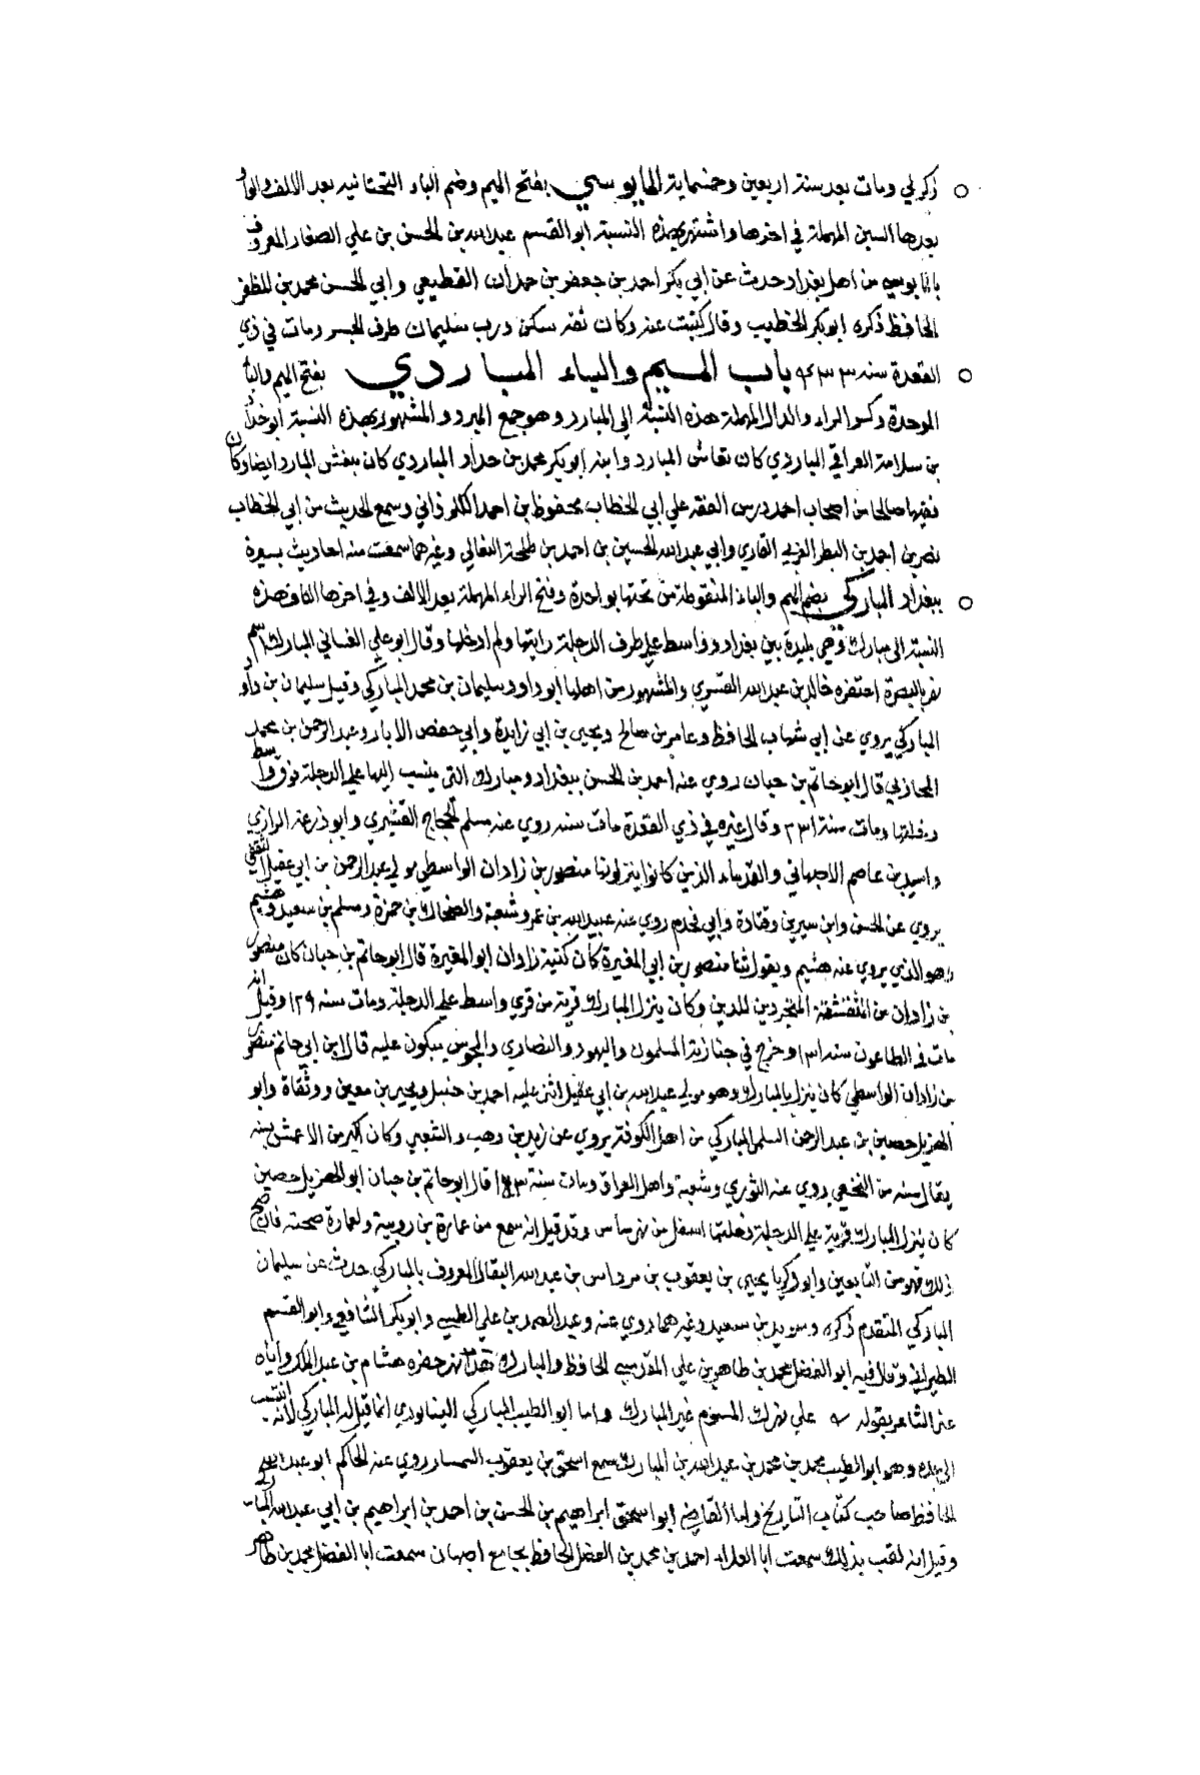 ذكر لي ومات بعد سنة اربعين وخمسماية المايوسي بفتح الميم وضم الياء التحتانية بعد الالف والواو
بعدها السين المهملة في اخرها واشتهر بهذه النسبة ابو القسم عبدالله بن الحسن بن علي الصفار المعروف
بالمايوسي من اهل بغداد حدث عن ابي بكر احمد بن جعفر بن حمدان القطيعي وابي الحسن محمد بن المظفر
الحافظ ذكره ابو بكر الخطيب وقال كتبت عنه وكان ثقه سكن درب سليمان طرف الجسر ومات في ذي
القعدة سنه باب الميم والباء المباردي بفتح الميم والبا
الموحدة وكسر الراء والدال المهملة هذه النسبة الى المبارد وهو جمع المبرد والمشهور بهذه النسبة ابو
بن سلامة العراقي المباردي كان نقاش المبارد وابنه ابو بكر محمد بن حداد المباردي كان ينقش المبارد ايضا وكان
فقيها صالحا من اصحاب احمد درس الفقه علي ابي الخطاب محفوظ بن احمد الكلوذاني وسمع الحديث من ابي الخطاب
نصر بن احمد بن البطر القاري وابي عبدالله الحسين بن احمد بن طلحة النعالي وغيرهما سمعت منه احاديث يسيرة
ببغداد المباركي بضم الميم والباء المنقوطة من تحتها بواحدة وفتح الراء المهملة بعد الالف وفي اخرها الكاف هذه
النسبة الى مبارك وهي بليدة بين بغداد وواسط على طرف الدجلة رايتها ولم ادخلها وقال ابو علي الغساني المبارك اسم
نهر بالبصرة احتفره خالد بن عبدالله القسري والمشهور من اهلها ابو داود سليمان بن محمد المباركي وقيل سليمان بن داود
المباركي يروي عن ابي شهاب الحافظ وعامر بن صالح ويحيى بن ابي زايدة وابي حفص الابار وعبدالرحمن بن محمد
المحاربي قال ابو حاتم بن حبان روي عنه احمد بن الحسن ببغداد ومبارك التي ينسب اليها على الدجلة فوق واسط
دخلتها ومات سنة ٢٣١ وقال غيره في ذي القعدة مات سنه روي عنه مسلم الحجاج القشيري وابو زرعة الرازي
واسيد بن عاصم الاصبهاني والقدماء الذين كانوا ينزلونها منصور بن زادان الواسطي مولي عبدالرحمن بن ابي عقيل الثقفي
يروي عن الحسن وابن سيرين وقتادة وابي روي عنه عبيدالله بن عمر وشعبة والضحاك بن حمزة ومسلم بن سعيد وهشيم
وهو الذي يروي عنه هشيم ويقول ثنا منصور بن ابي المغيرة كان كنية زادان ابو المغيرة قال ابو حاتم بن حبان كان منصور
بن زادان من المتقشفة المتجردين للدين وكان ينزل المبارك قرية من قري واسط علي الدجلة ومات سنه ١٢٩ وقيل انه
مات في الطاعون سنه ١٣١ وخرج في جنازته المسلمون واليهود والنصاري والمجوس يبكون عليه قال ابن ابي حاتم منصور
بن زادان الواسطي كان ينزل بالمبارك وهو مولي عبدالله بن ابي عقيل اثنى عليه احمد بن حنبل ويحيى بن معين ووثقاه وابو
الهزيل حصين بن عبدالرحمن السلمي المباركي من اهل الكوفة يروي عن زيد بن وهب والشعبي وكان اكبر من الاعمش بسنه
يقال سنه من النخعي روي عنه الثوري وشعبة واهل العراق ومات سنة قال ابو حاتم بن حبان ابو الهزيل حصين
كان ينزل المبارك قرية على الدجلة دخلتها اسفل من نهر سابس وقد قيل انه سمع من عمارة بن رويبة ولعمارة صحبته فان صح
ذلك فهو من التابعين وابو زكريا يحيى بن يعقوب بن مرداس بن عبدالله البقال المعروف بالمباركي حدث عن سليمان
المباركي المتقدم ذكره وسويد بن سعيد وغيرهما روي عنه وعبدالصمد بن علي الطيبي وابو بكر الشافعي وابو القسم
الطبراني وقال فيه ابو الفضل محمد بن طاهر بن علي المقدسي الحافظ والمبارك نهر حفره هشام بن عبدالملك واياه
عنى الشاعر بقوله علي نهرك المشؤم غير المبارك واما ابو الطيب المباركي النيسابوري انما قيل له المباركي لانه انتسب
الى جده وهو ابو الطيب محمد بن محمد بن عبدالله بن المبارك سمع اسحق بن يعقوب السمسار روي عنه الحاكم ابو عبدالله
الحافظ صاحب كتاب التاريخ واما القاضي ابو اسحق ابراهيم بن الحسن بن احمد بن ابراهيم بن ابي عبدالله المباركي
وقيل انه لقب بذلك سمعت ابا العلاء احمد بن محمد بن الفضل الحافظ بجامع اصبهان سمعت ابا الفضل محمد بن طاهر